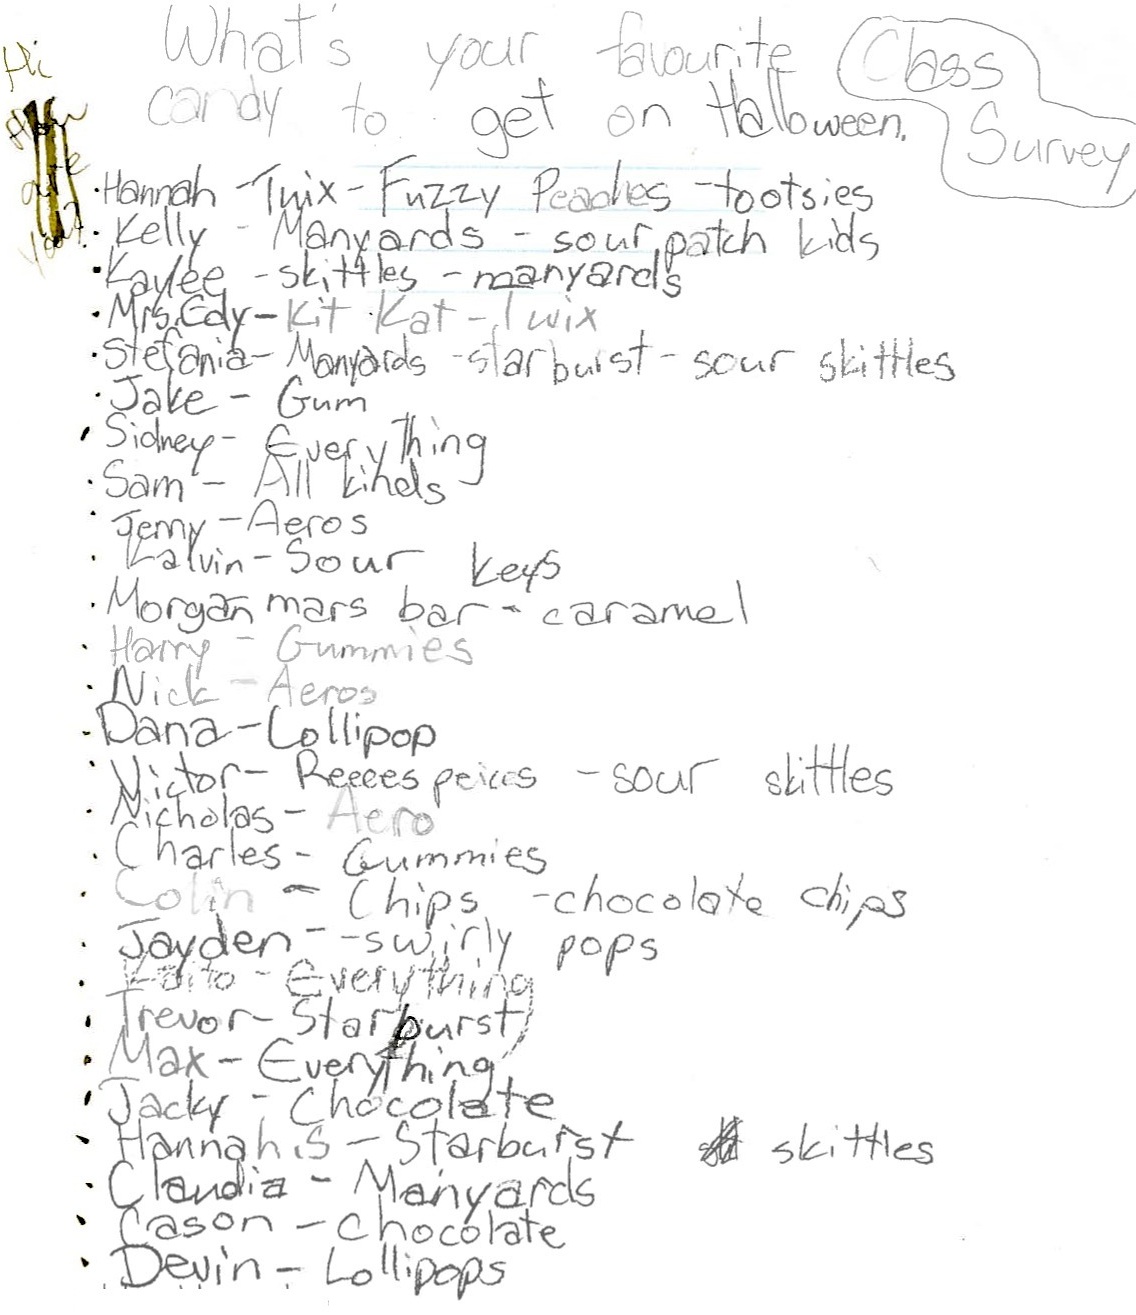 What's your favourite
candy to get on Halloween.
Class
Survey
Hi
How
are
you?
·Hannah - Twix - Fuzzy Peaches - tootsies
·Kelly - Manyards - sour patch kids
·Kaylee - skittles - manyards
·Mrs. Edy - Kit Kat - Twix
·Stefania - Manyards - starburst - sour skittles
·Jake - Gum
·Sidney - Everything
·Sam - All kinds
·Jenny - Aeros
·Kalvin - Sour keys
·Morgan mars bar - caramel
·Harry - Gummies
·Nick - Aeros
·Dana - Lollipop
·Victor - Reeees peices - sour skittles
·Nicholas - Aero
·Charles - Gummies
·Colin - Chips - chocolate chips
·Jayden - - swirly pops
·Kaito - Everything
·Trevor - Starburst
·Max - Everything
·Jacky - Chocolate
·Hannah.S - Starburst skittles
·Claudia - Manyards
·Cason - chocolate
·Devin - Lollipops